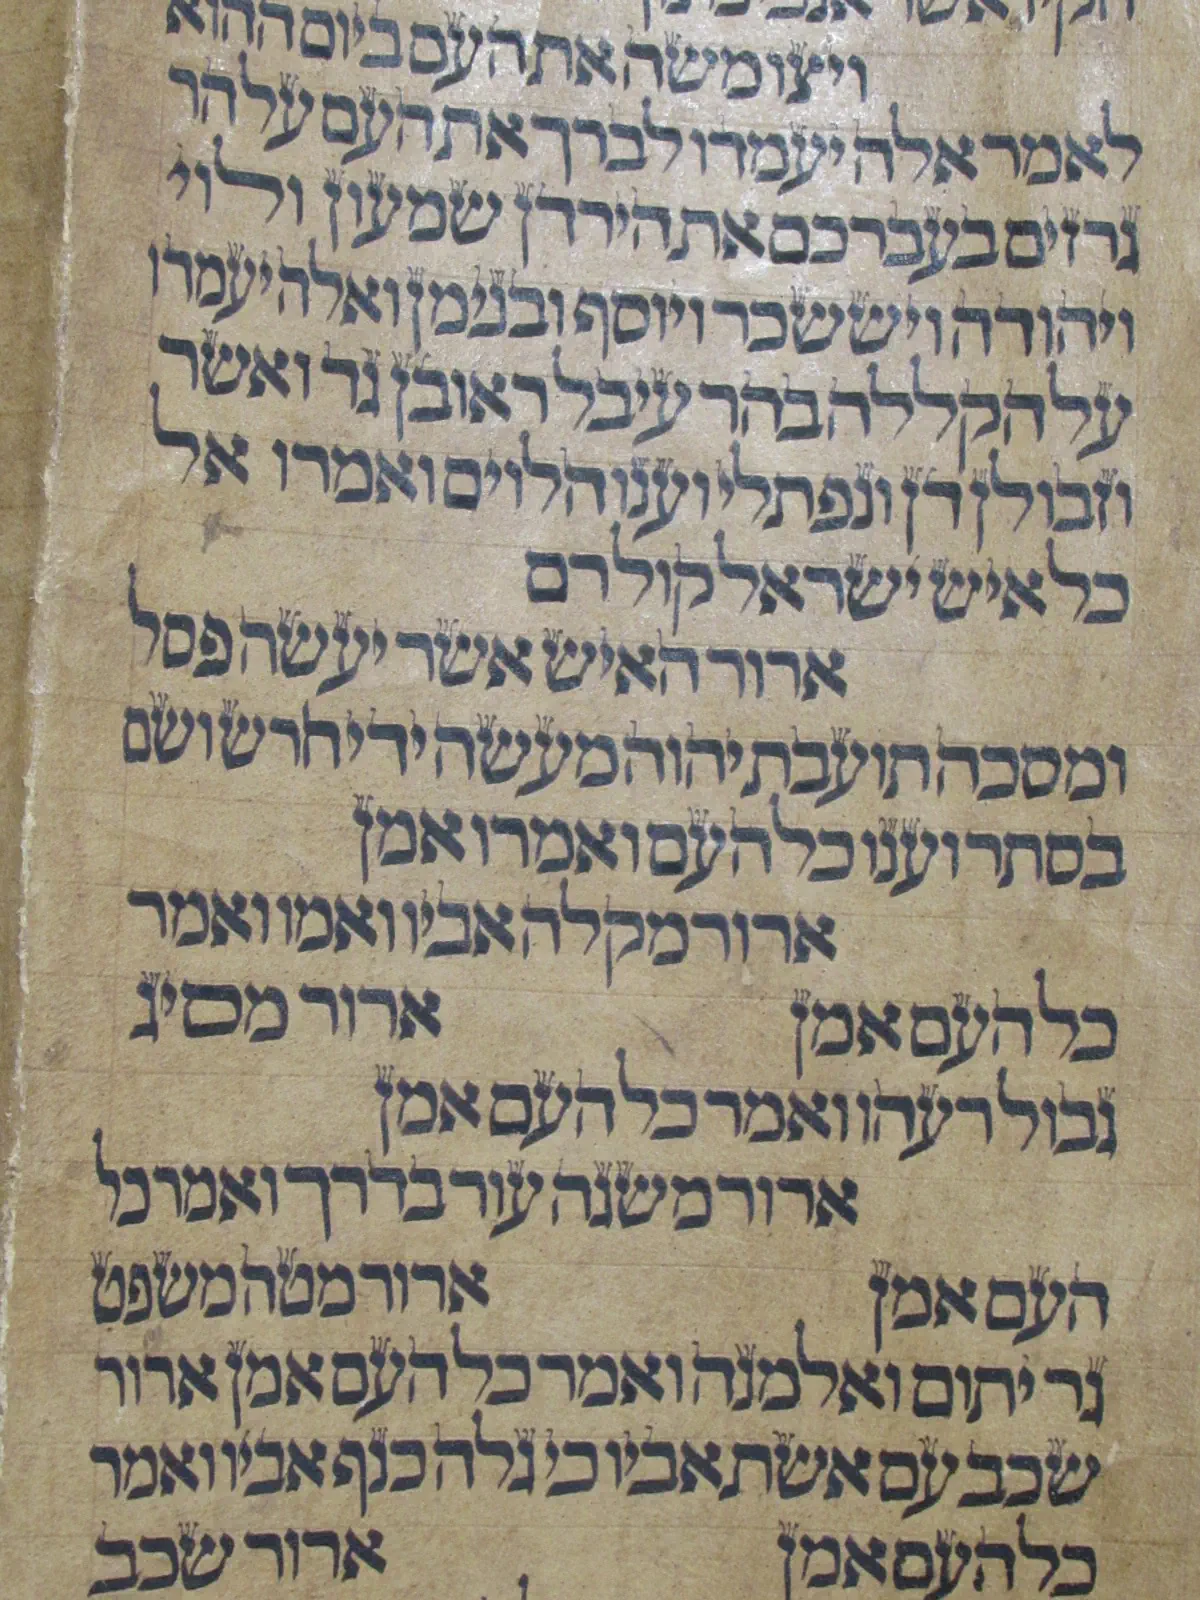 ויצו משה את העם ביום ההוא
לאמר אלה יעמדו לברך את העם על הר
גרזים בעברכם את הירדן שמעון ולוי
ויהודה ויששכר ויוסף ובנימן ואלה יעמדו
על הקללה בהר עיבל ראובן גד ואשר
וזבולן דן ונפתלי וענו הלוים ואמרו אל
כל איש ישראל קול רם
ארור האיש אשר יעשה פסל
ומסכה תועבת יהוה מעשה ידי חרש ושם
בסתר וענו כל העם ואמרו אמן
ארור מקלה אביו ואמו ואמר
כל העם אמן ארור מסיג
גבול רעהו ואמר כל העם אמן
ארור משגה עור בדרך ואמר כל
העם אמן ארור מטה משפט
גר יתום ואלמנה ואמר כל העם אמן ארור
שכב עם אשת אביו כי גלה כנף אביו ואמר
כל העם אמן ארור שכב